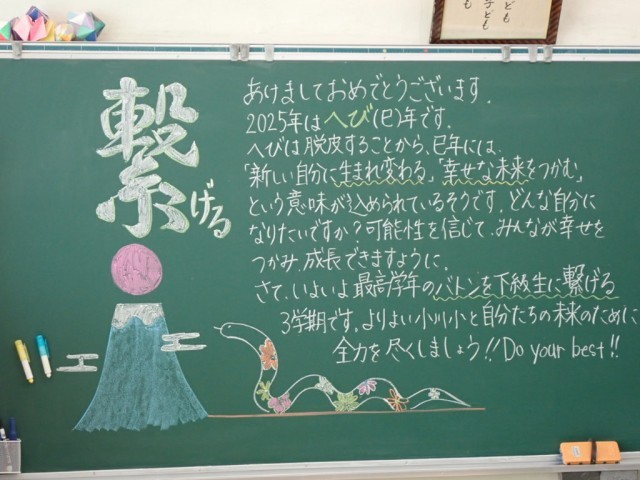 ども
子ども
も
繋げる
あけましておめでとうございます。
2025年はへび(巳)年です。
へびは脱皮することから、巳年には、
「新しい自分に生まれ変わる」「幸せな未来をつかむ」
という意味が込められているそうです。どんな自分に
なりたいですか?可能性を信じて、みんなが幸せを
つかみ、成長できますように。
さて、いよいよ最高学年のバトンを下級生に繋げる
3学期です。よりよい小川小と自分たちの未来のために
全力を尽くしましょう!!Do your best!!